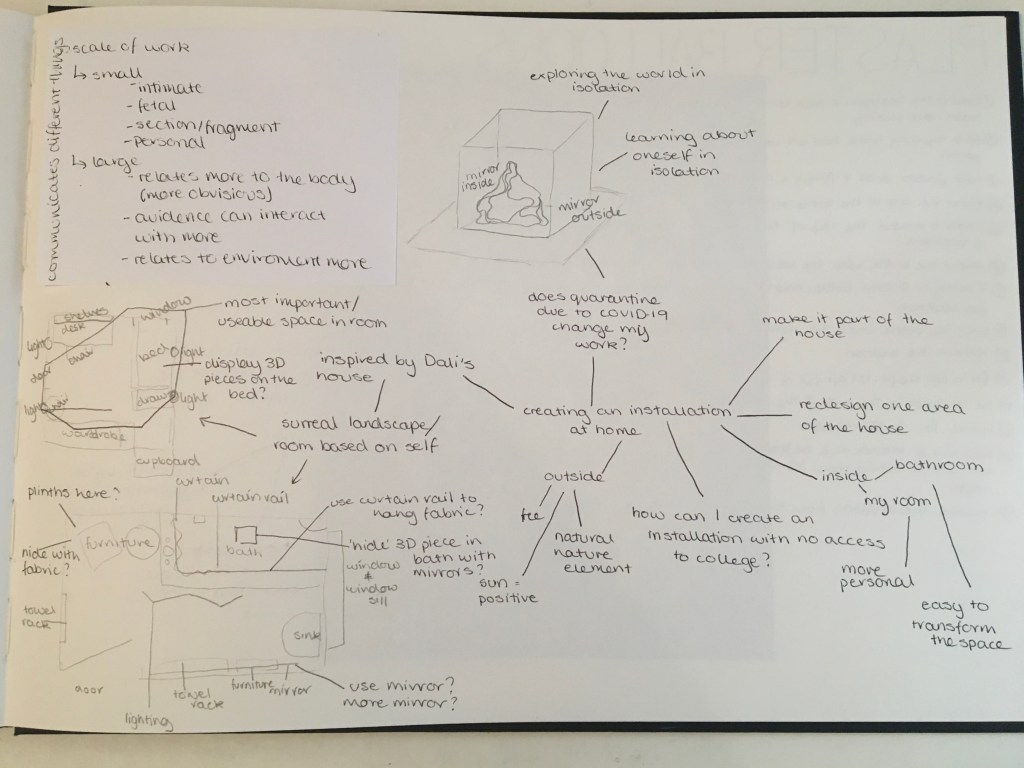 communicates different things
scale of work
↳ small
- intimate
- fetal
- section/fragment
- personal
↳ large
- relates more to the body
(more obvisious)
- avidence can interact
with more
- relates to enviroment more
exploring the world in
isolation
learning about
oneself in
isolation
mirror
inside
mirror
outside
does quarantine
due to COVID-19
change my
work?
make it part of the
house
redesign one area
of the house
creating an installation
at home
inspired by Dali's
house
surreal landscape/
room based on self
outside
natural
nature
element
sun =
positive
how can I create an
installation with no access
to college?
inside
bathroom
my room
more
personal
easy to
transform
the space
most important/
useable space in room
window
shelves
desk
light
door
bed
light
display 3D
pieces on the
bed?
draw
light
light
wardrobe
cupboard
curtain
curtain rail
use curtain rail to
hang fabric?
plinths here?
furniture
hide with
fabric?
bath
'hide' 3D piece in
bath with
mirrors?
window
+
window
sill
towel
rack
sink
door
lighting
towel
rack
furniture
mirror
use mirror?
more mirror?